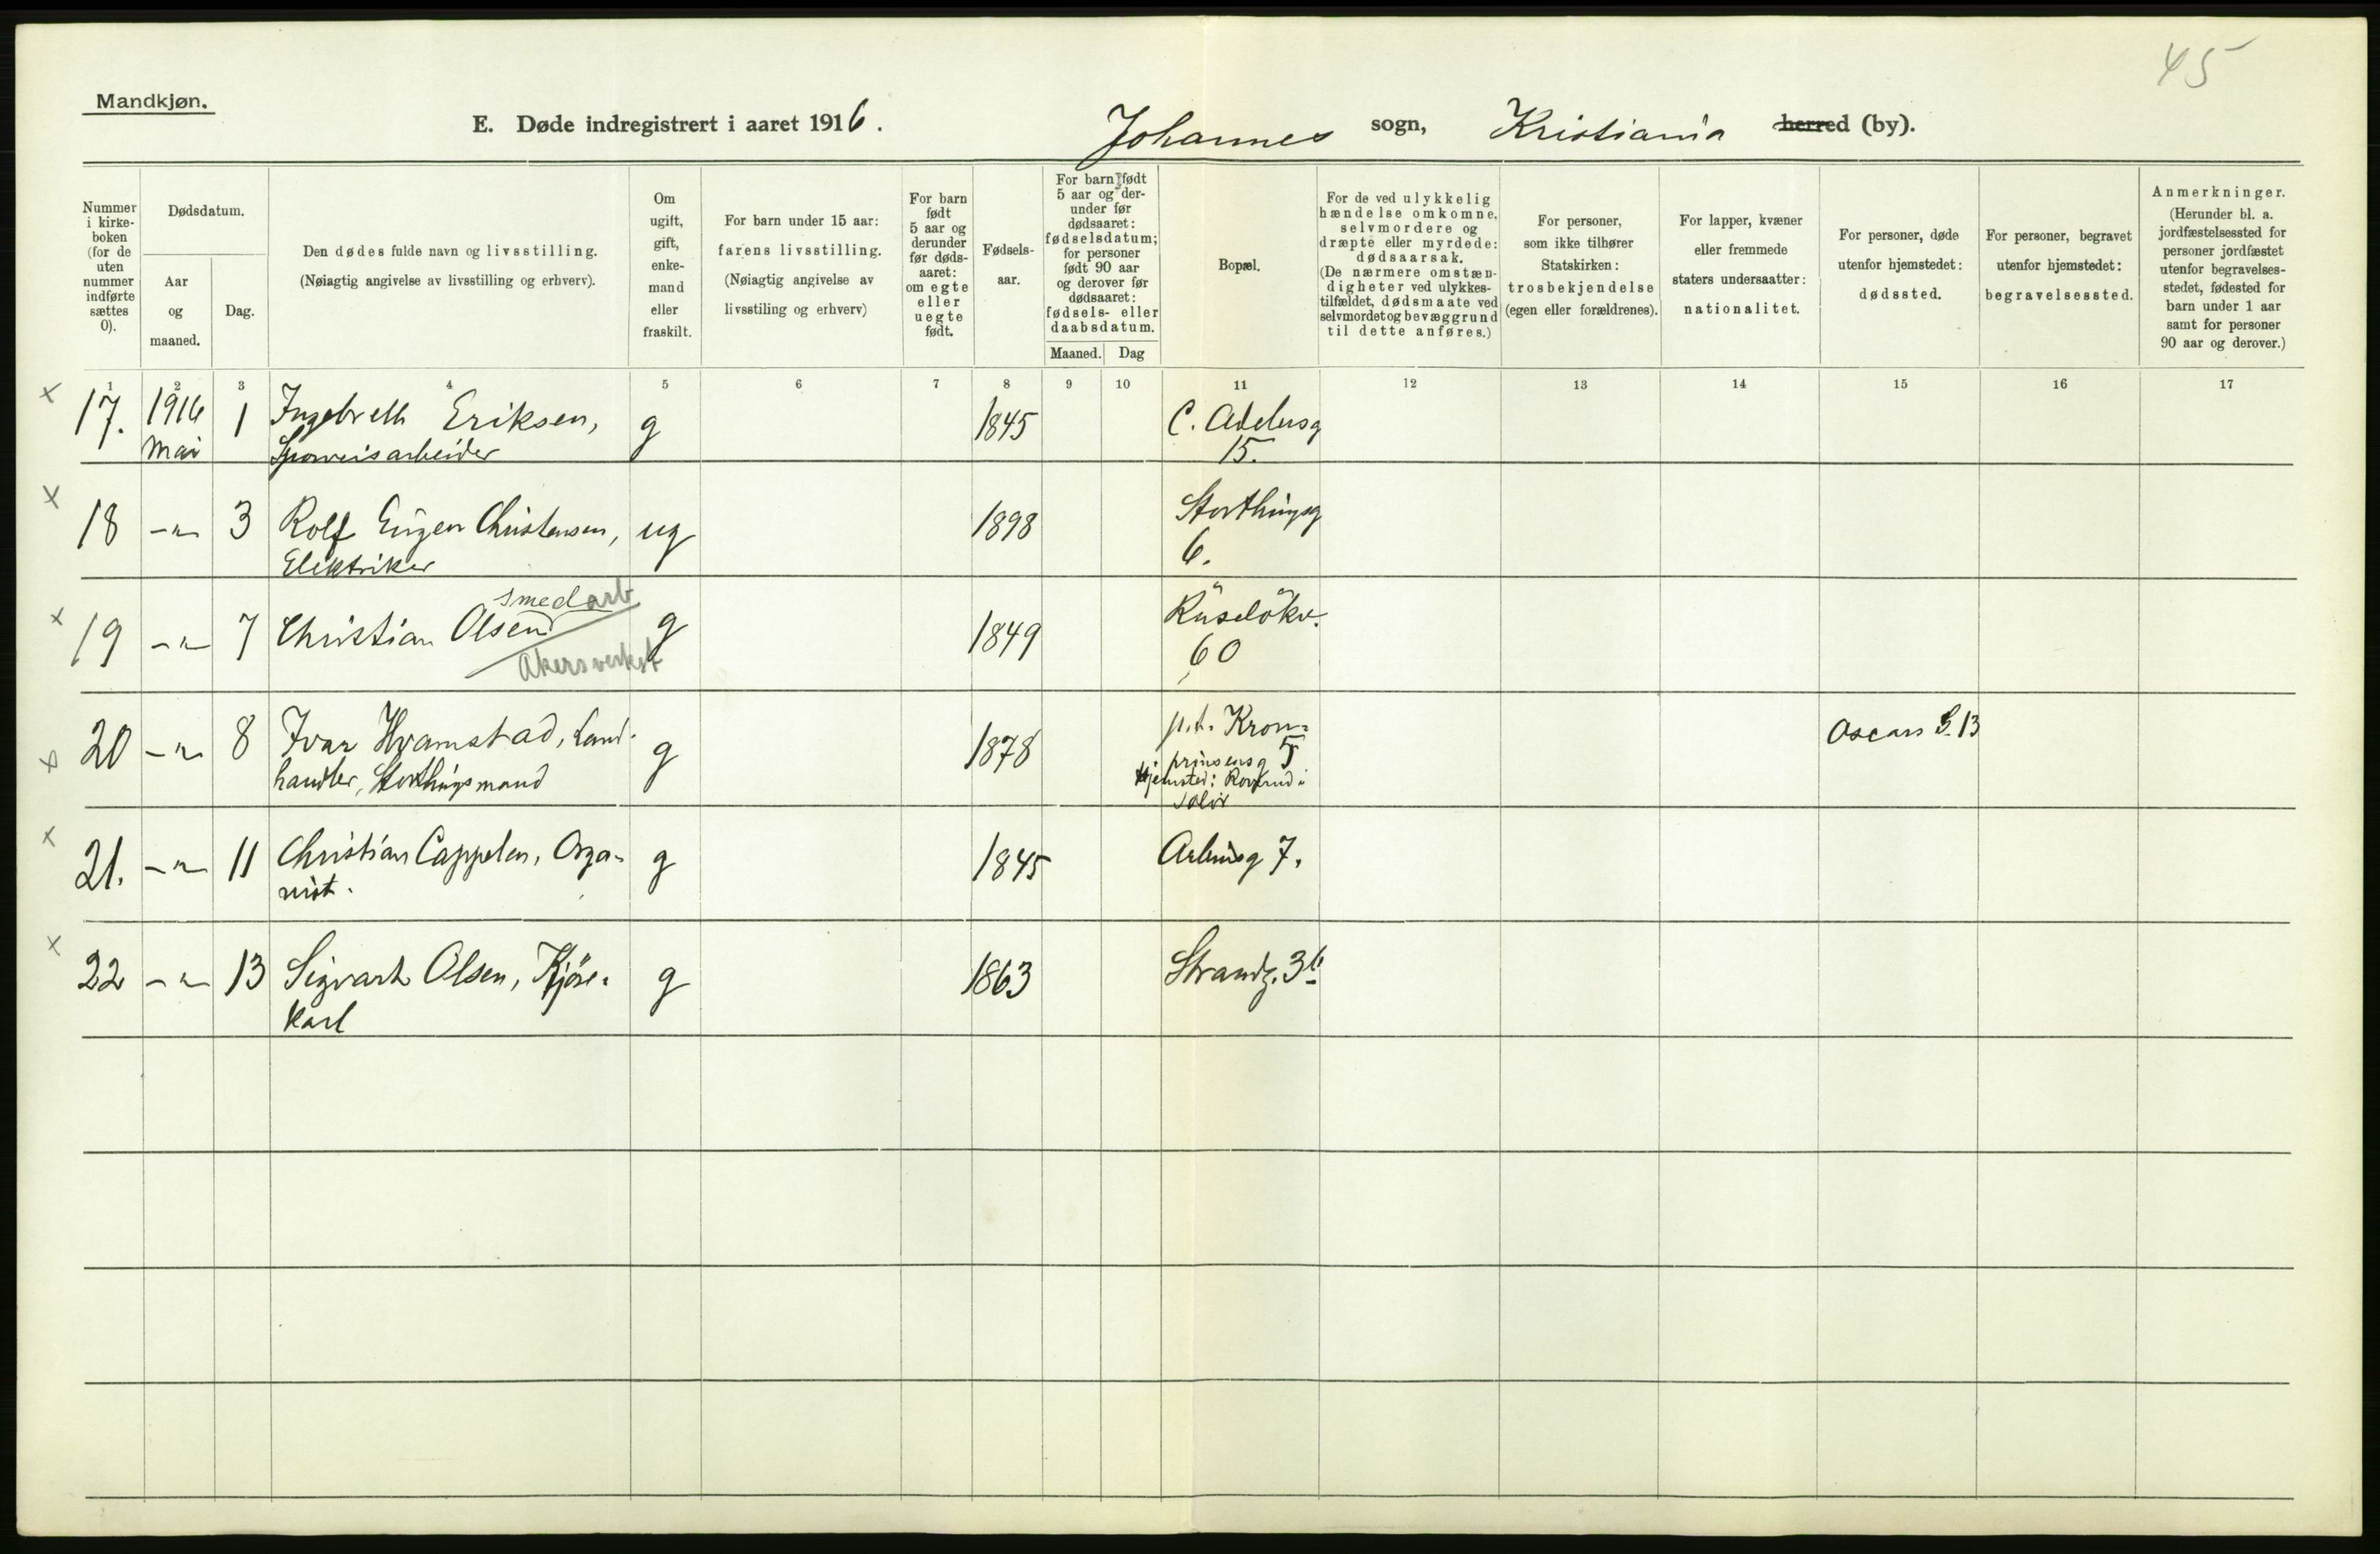 45
Mandkjøn.
E. Døde indregistrert i aaret 1916. Johannes sogn, Kristiania herred (by).
Nummer i kirke-boken (for de uten nummer indførte sættes 0).
Dødsdatum.
Aar og maaned.
Dag.
Den dødes fulde navn og livsstilling.
(Nøiagtig angivelse av livsstilling og erhverv).
Om ugift, gift, enke-mand eller fraskilt.
For barn under 15 aar: farens livsstilling.
(Nøiagtig angivelse av livsstiling og erhverv)
For barn født 5 aar og derunder før døds-aaret: om egte eller uegte født.
Fødsels-aar.
For barn født 5 aar og der-under før dødsaaret: fødselsdatum; for personer født 90 aar og derover før dødsaaret: fødsels- eller daabsdatum.
Maaned. Dag
Bopæl.
For de ved ulykkelig hændelse omkomne, selvmordere og dræpte eller myrdede: dødsaarsak.
(De nærmere omstæn-digheter ved ulykkes-tilfældet, dødsmaate ved selvmordet og bevæggrund til dette anføres.)
For personer, som ikke tilhører Statskirken: trosbekjendelse (egen eller forældrenes).
For lapper, kvæner eller fremmede staters undersaatter: nationalitet.
For personer, døde utenfor hjemstedet: dødssted.
For personer, begravet utenfor hjemstedet: begravelsessted.
Anmerkninger.
(Herunder bl. a. jordfæstelsessted for personer jordfæstet utenfor begravelses-stedet, fødested for barn under 1 aar samt for personer 90 aar og derover.)
1 2 3 4 5 6 7 8 9 10 11 12 13 14 15 16 17
x 17. 1916 1 Ingebreth Eriksen, g 1845 C. Adelersg
Mai Sporveisarbeider 15.
x 18 -"- 3 Rolf Eugen Christensen, ug 1898 Storthingsg
Elektriker 6.
x smedarb
19 -"- 7 Christian Olsen g 1849 Ruseløkv.
Akersverkst 60
x 20 -"- 8 Ivar Hvamstad, Land- g 1878 p.t. Kron- Oscars G. 13
handler, Storthingsmand prinsensg 5
Hjemsted:
Solør
x 21. -"- 11 Christian Cappelen, Orga- g 1845 Arbinsg 7.
nist.
x 22 -"- 13 Sigvart Olsen, Kjøre- g 1863 Strandg. 3b
karl